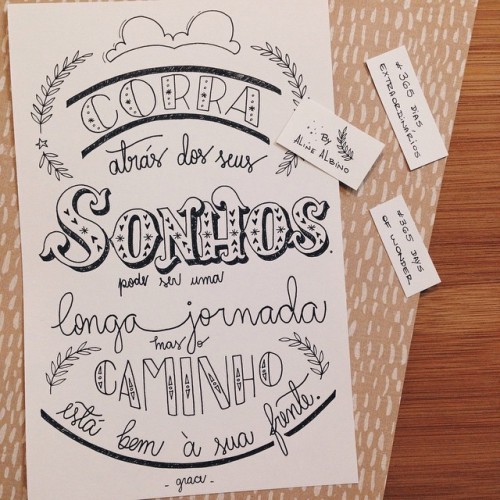 CORRA
atrás dos seus
SONHOS.
pode ser uma
longa jornada
mas o
CAMINHO
está bem à sua frente.
- graci -
BY
ALINE ALBINO
* 365 DIAS
EXTRAORDINÁRIOS
* 365 DAYS
OF WONDER